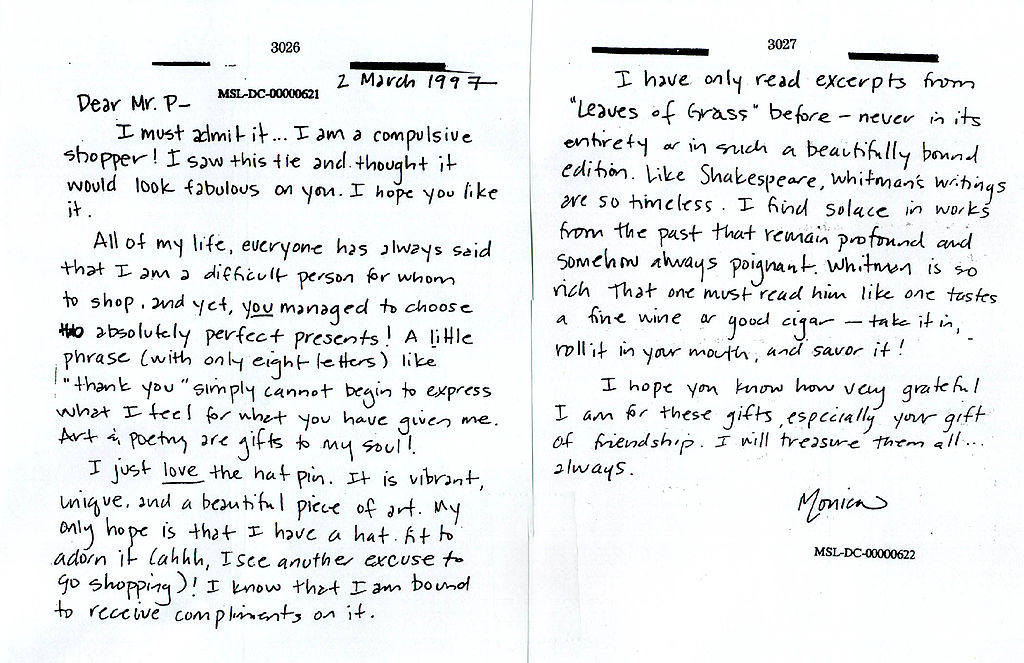 3026
2 March 1997
MSL-DC-00000621
Dear Mr. P-
I must admit it... I am a compulsive
shopper! I saw this tie and thought it
would look fabulous on you. I hope you like
it.
All of my life, everyone has always said
that I am a difficult person for whom
to shop, and yet, you managed to choose
two absolutely perfect presents! A little
phrase (with only eight letters) like
"thank you" simply cannot begin to express
what I feel for what you have given me.
Art & poetry are gifts to my soul!
I just love the hat pin. It is vibrant,
unique, and a beautiful piece of art. My
only hope is that I have a hat fit to
adorn it (ahhh, I see another excuse to
go shopping)! I know that I am bound
to receive compliments on it.
3027
I have only read excerpts from
"Leaves of Grass" before - never in its
entirety or in such a beautifully bound
edition. Like Shakespeare, Whitman's writings
are so timeless. I find solace in works
from the past that remain profound and
somehow always poignant. Whitman is so
rich that one must read him like one tastes
a fine wine or good cigar - take it in,
roll it in your mouth, and savor it!
I hope you know how very grateful
I am for these gifts, especially your gift
of friendship. I will treasure them all...
always.
Monica
MSL-DC-00000622